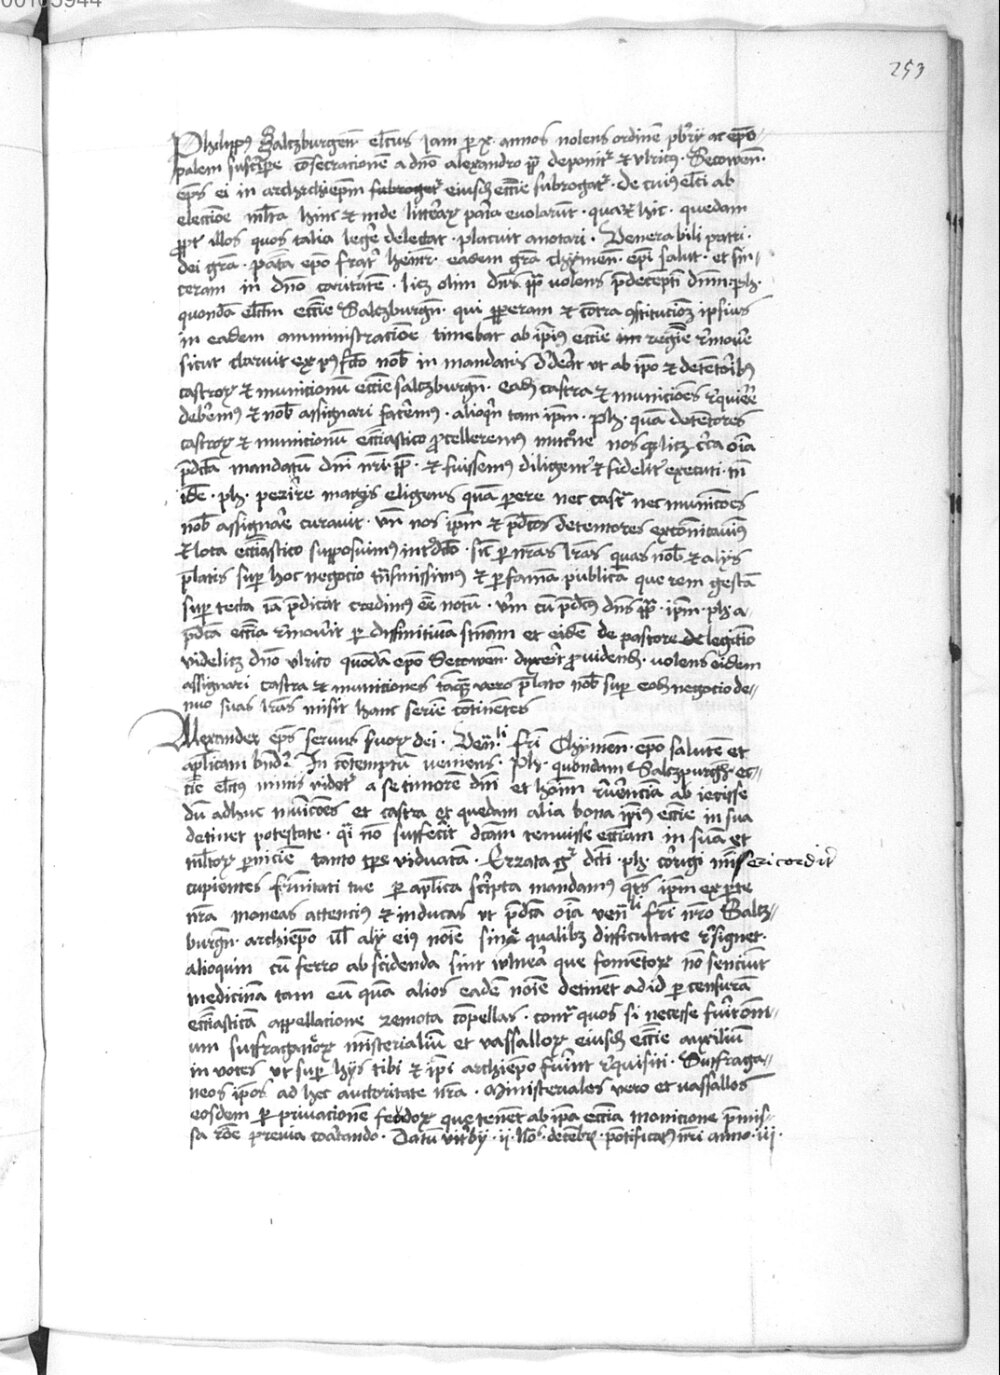 253
Philippus Saltzburgen̄ elc̄tus iam p x annos nolens ordinē pb̄rij ac ep̄o-
palem suscip̄e cōsecracionē a dn̄o alexandro pp̄ deponit᷑ et vlricus Secowen̄
ep̄s ei in archiep̄m subrogat᷑ eiusdē eccl̄ie subrogat᷑ · de cui9 elc̄i ab
elec̄cioe ml̄ta hinc et inde litterarꝝ paria euolarūt · quarꝝ hic quedam
ppt̄ illos quos talia leger̄ delectat placuit anotari · Venerabili patri
dei gr̄a · patā ep̄o frat᷑ heinr̄ eadem gr̄a chymen̄ ep̄s salut̄ et sin-
ceram in dn̄o caritatē · licꝫ olim dn̄s pp̄ volens p̄decepti dn̄m ph̄
quondā elc̄m eccl̄ie Saltzburgn̄ · qui ꝑperam et cōtra ꝯstitucionē ipsius
in eadem amministracioē timebat ab ip̄ius eccl̄ie regīe r̄mouer̄
sicut claruit ex pꝰfc̄o nob̄ in mandatis d̄deāt vt ab ip̄o et detētorib9
castrorꝝ et municionū eccl̄ie saltzburgn̄ · eadē castra et municiōes r̄quirēr̄
deber̄em9 et nob̄ assignari facerem9 · alioqn̄ tam ip̄m · ph̄ · quā detētores
castrorꝝ et municionū eccl̄iastico ꝓcellerem9 mucrōe nos qꝫ licꝫ cīca oīa
p̄dc̄a mandatum dn̄i nr̄i pp̄ · et fuissem9 diligent᷑ et fidelit᷑ executi · tn̄
idē · ph̄ · perire magis eligens quā parere nec castr̄ nec municiōes
nob̄ assignar̄e curauit · vn̄ nos ip̄m et p̄dc̄os detentores excōicauim9
et loca eccl̄iastico supposuim9 int᷑dc̄o · sic̄ p nr̄as lr̄as quas nob̄ et alijs
p̄latis sup̄ hoc negocio trāsmissim9 et p famā publicā que rem gestā
sup̄ tecta iā p̄dicat credim9 eē notū · vr̄m cū p̄dc̄us dn̄s pp̄ · ip̄m · ph̄ a
p̄dc̄a eccl̄ia r̄mouit p diffinitiuā sn̄iam et eidē de pastore legitīo
videlicꝫ dn̄o vlrico quondā ep̄o Secowen̄ duxerit ꝓuidend̄ · volens eidem
assignari castra et municiones tāqꝫ vero p̄lato nob̄ sup̄ eodē negocio de-
nuo suas lr̄as misit hanc seriē cōtinētes
Alexander ep̄s seruus suorꝝ dei · Ven̄li fr̄i Chymen̄ ep̄o salutē et
apl̄icam bn̄d᷑ · In cōtemptum veniens · Ph̄ · quondam Saltzpurgn̄ ec-
cl̄ie elc̄us nimis videt᷑ a se timorē dīni et hoīm r̄uerēciā abiecisse
dū adhuc mūiciōes et castra et quedam alia bona ip̄ius eccl̄ie in sua
detinet potestate · qi nō suffecit dc̄am tenuisse eccl̄iam in suā et
ml̄torꝝ pniciē tanto tp̄e viduatā · Errata gͦ dc̄i · ph̄ corrigi misericordit᷑
cupientes fr̄nitati tue p apl̄ica sc̄ripta mandamus qt̄s ip̄m ex pte
nr̄a moneas attenci9 et inducas vt p̄dc̄a oīa ven̄li fr̄i nr̄o Saltz-
burgn̄ · archiep̄o vl̄ alij ei9 noīe sine qualibꝫ difficultate r̄signet
alioquin cū ferro abscidenda sint vlnera que fomētorꝝ nō senciūt
medicinā tam eū quā alios eadē noīe detinēt ad id p censurā
eccl̄iasticā appellatione remota cōpellas · contr̄ quos si necesse fuit om-
ium suffraganeorꝝ misterialiū et vassallorꝝ eiusdē eccl̄ie auxiliū
inuotes vt sup̄ hijs tibi et ip̄i archiep̄o fuint r̄quisiti · Suffraga-
neos ip̄os ad hec auctoritate nr̄a · Ministeriales vero et vassallos
eosdem p priuacionē feodorꝝ que tenēt ab ip̄a eccl̄ia monicione p̄mis-
sa r̄de preuia coartando · Datū viterbij · ij · No͂s · decēbr̄ · pōtificat9 nr̄i anno · iij ·